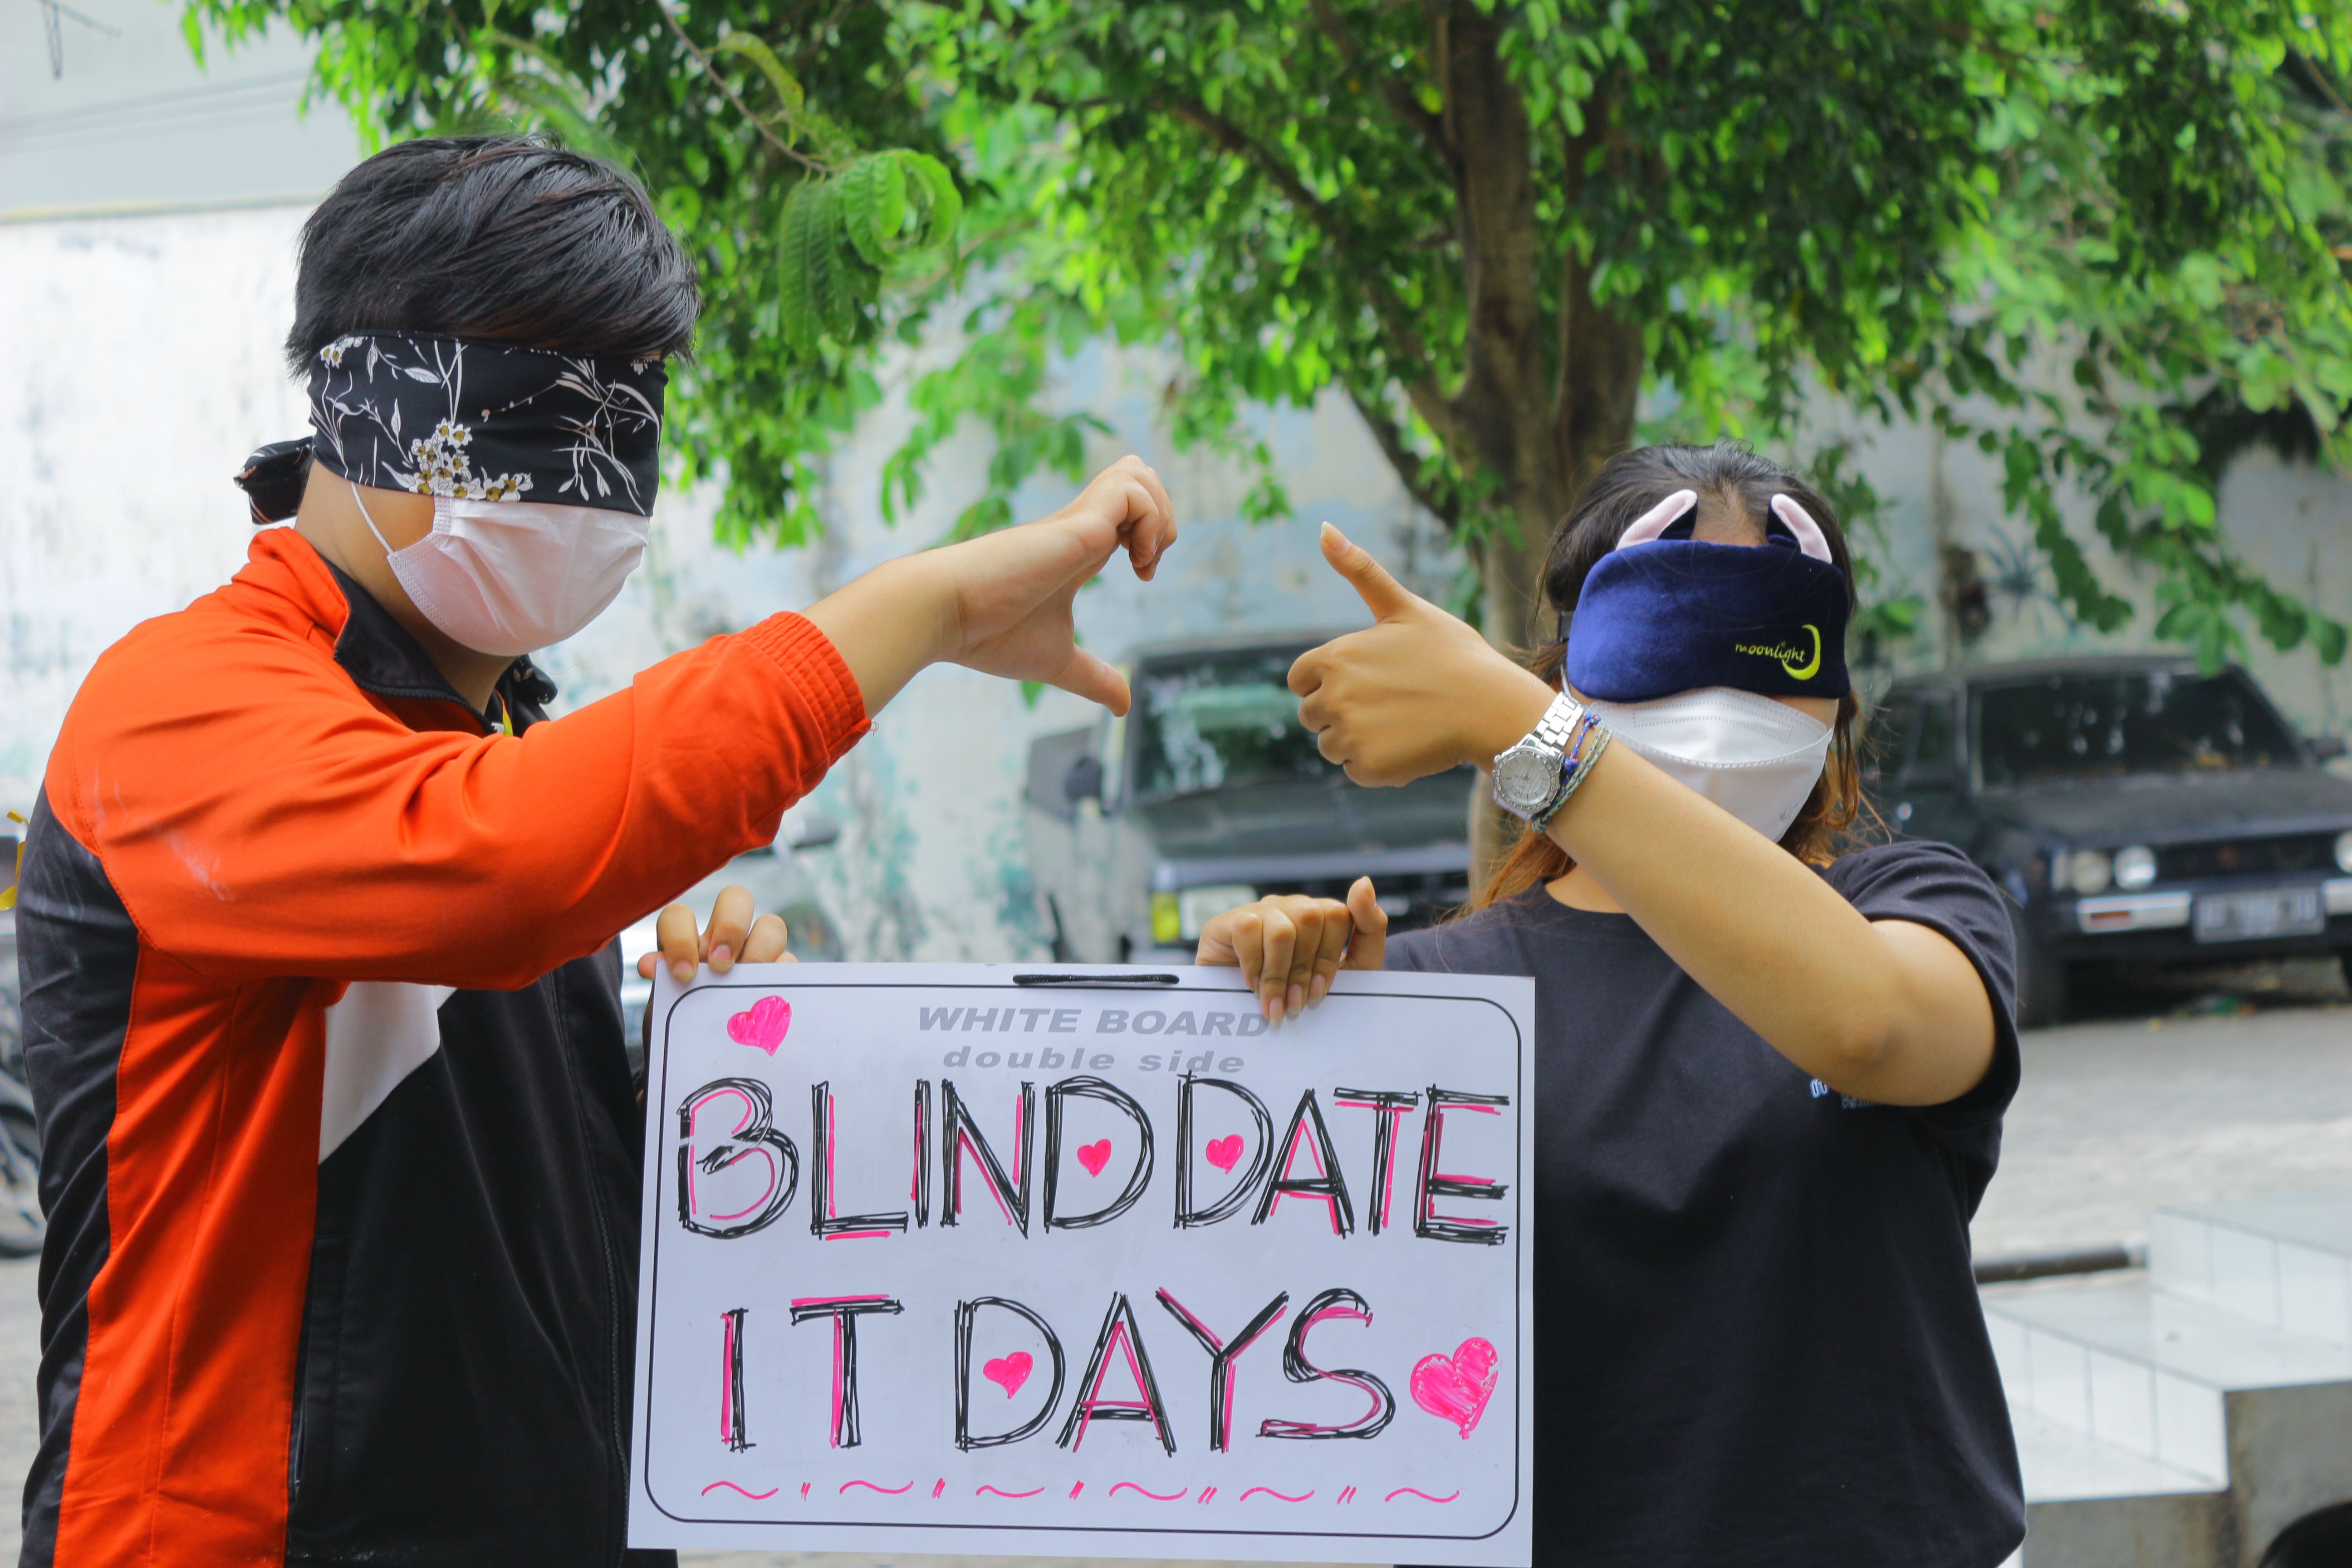 moonlight
WHITE BOARD
double side
BLIND DATE
IT DAYS